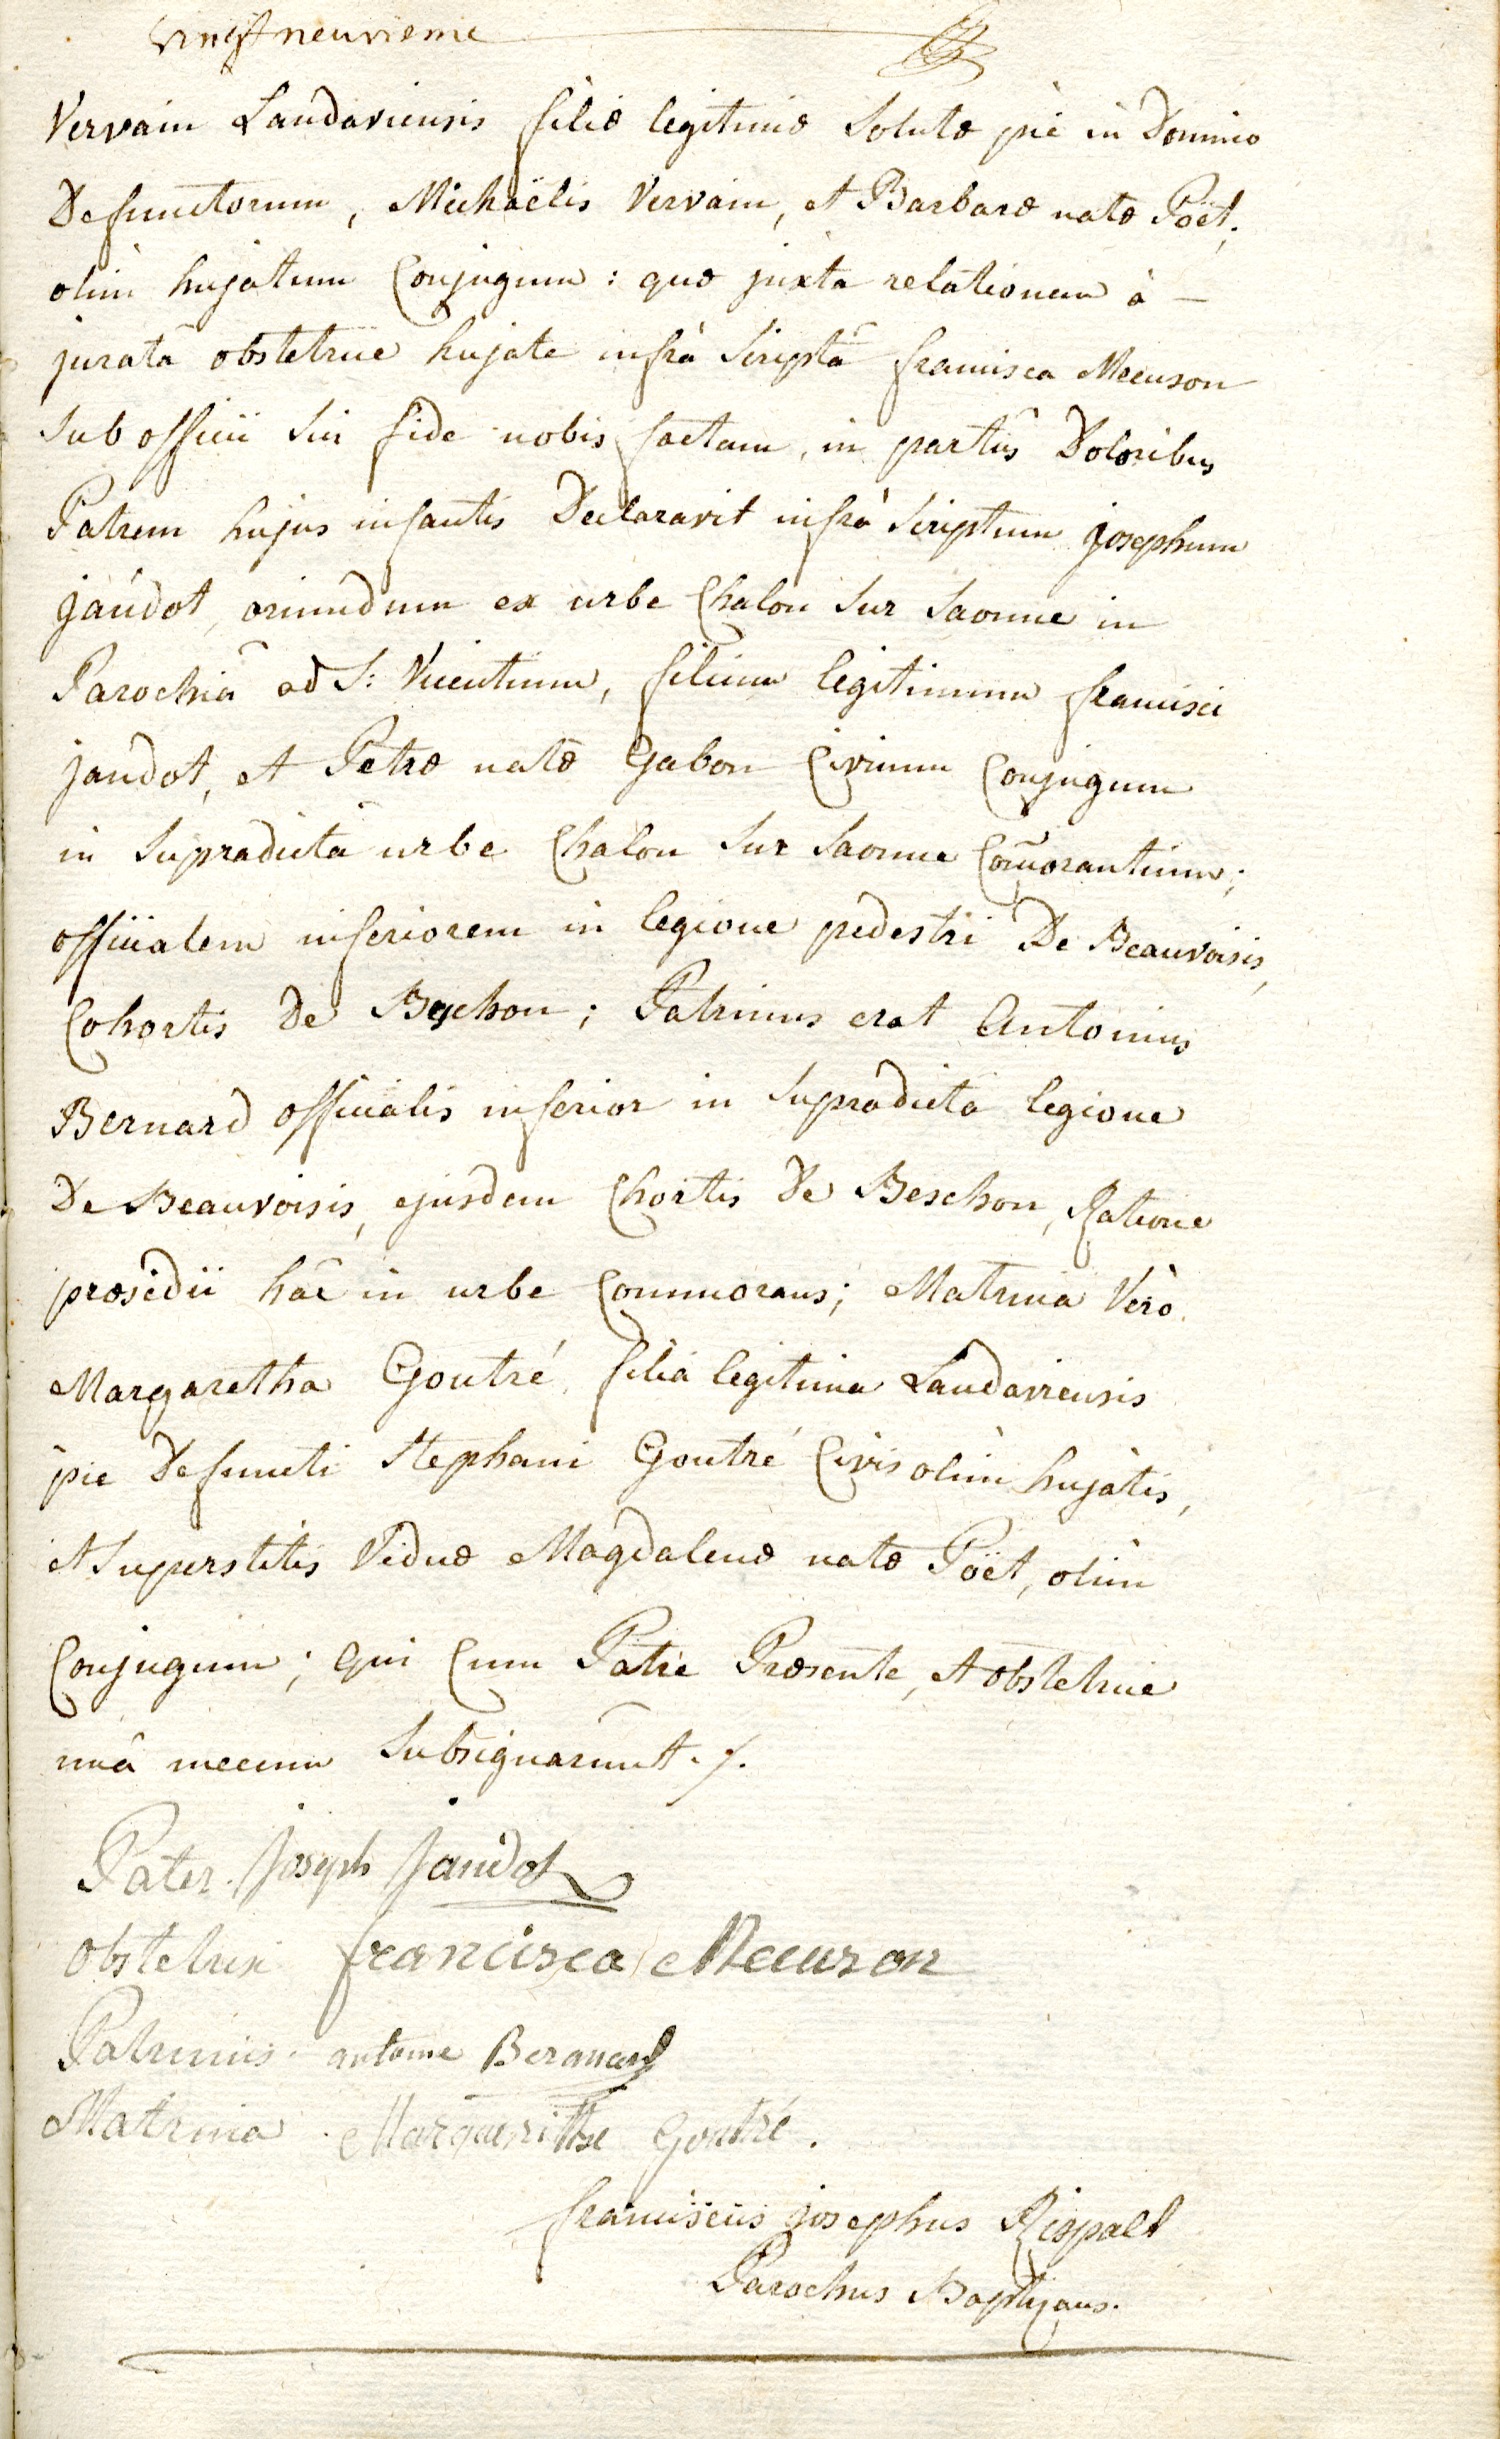 vingt neuvieme
Vervain Landaviensis filiæ legitimæ solutæ piè in Domino
Defunctorum, Michaëlis Vervain, et Barbaræ natæ Poët,
olim hujatum Conjugum : quæ juxta relationem à —
juratâ obstetrice hujate infrà scriptâ francisca Mecuson
sub officii sui fide nobis factam, in partûs Doloribus
Patrem hujus infantis Declaravit infrà scriptum josephum
jaudot, oriundum ex urbe Chalon sur saonne in
Parochiâ ad S: Vicentium, filium legitimum francisci
jaudot, et Petræ natæ Gabon Civium Conjugum
in supradictâ urbe Chalon sur saonne Com̃orantium;
officialem inferiorem in legione pedestri De Beauvoisis,
Cohortis De Beschon; Patrinus erat Antonius
Bernard officialis inferior in supradictâ legione
De Beauvoisis, ejusdem Chortis De Beschon, Ratione
præsidii hâc in urbe Commorans; Matrina Vèro
Margaretha Goutré filia legitima Landaviensis
piè Defuncti Stephani Goutré Civis olim hujatis,
et superstitis Viduæ Magdalenæ natæ Poët, olim
Conjugum; qui Cum Patre Præsente, et obstetrice
unâ mecum subsignarunt ./.
Pater joseph jaudot
obstetrix francisca Mecuson
Patrinus antoine Bernard
Matrina Margueritthe Goutré.
franciscus josephus Rispalt
Parochus Baptizans.